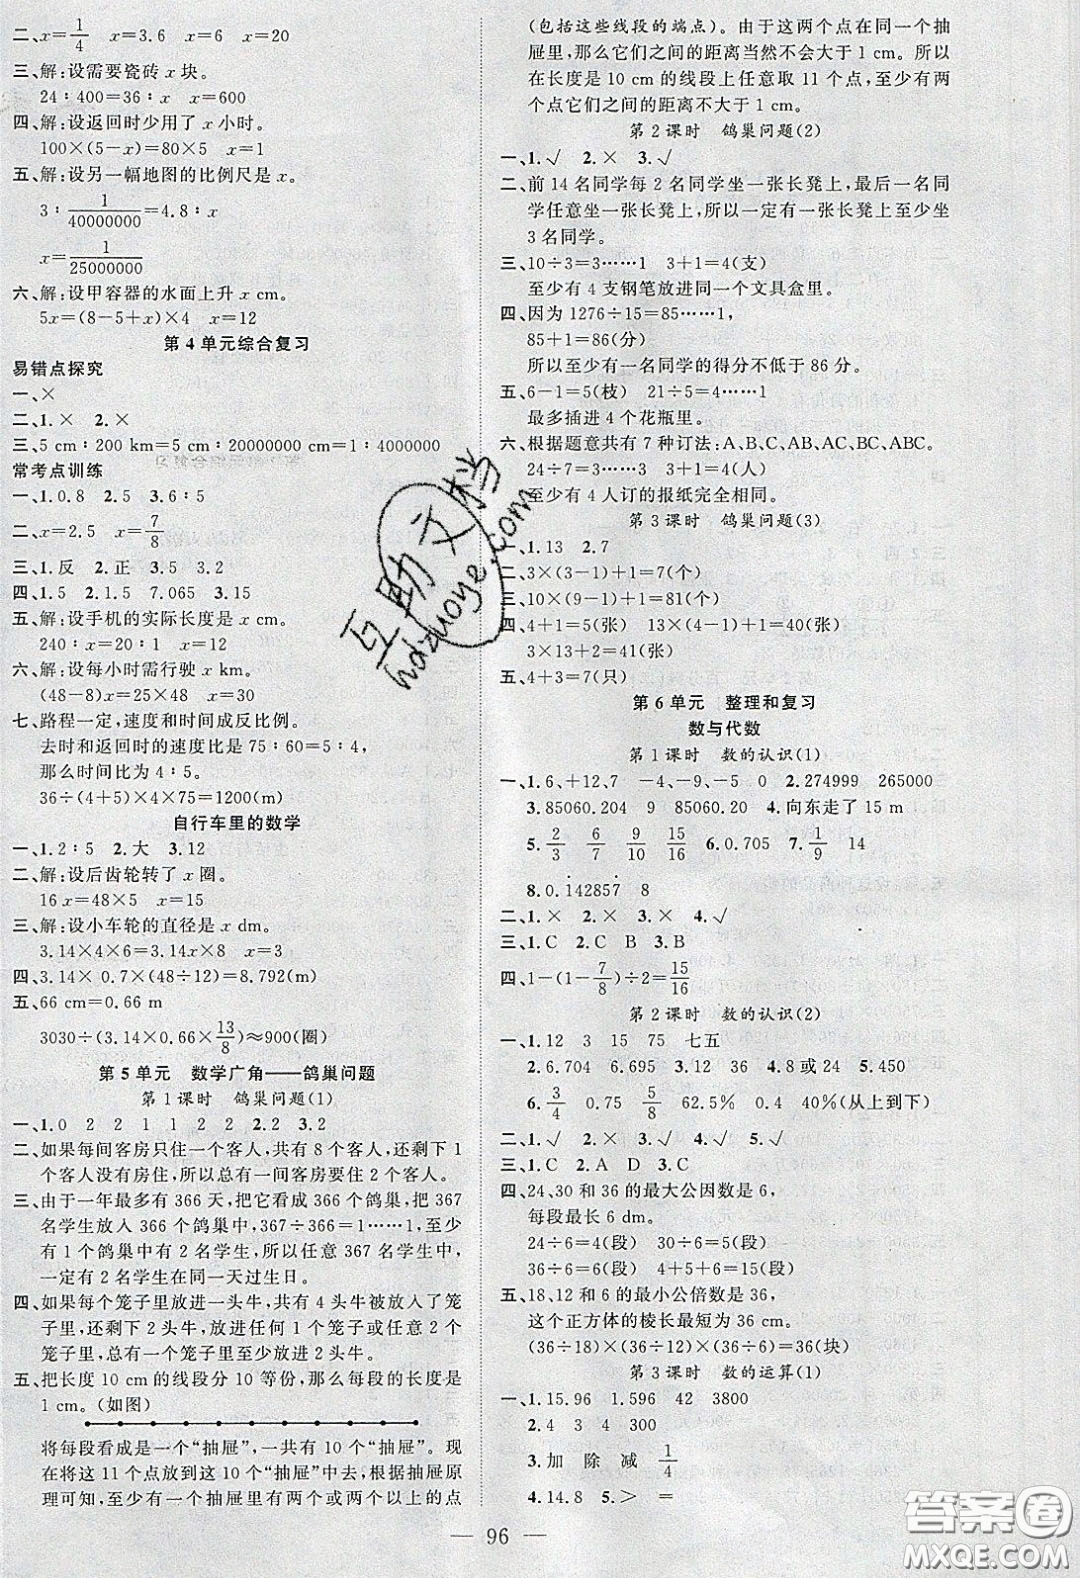 二、x=1/4　x=3.6　x=6　x=20
三、解:设需要瓷砖 x 块。
24∶400=36∶x　x=600
四、解:设返回时少用了 x 小时。
100×(5-x)=80×5　x=1
五、解:设另一幅地图的比例尺是 x。
3∶1/40000000=4.8∶x
x=1/25000000
六、解:设甲容器的水面上升 x cm。
5x=(8-5+x)×4　x=12
第 4 单元综合复习
易错点探究
一、×
二、1.×　2.×
三、5 cm∶200 km=5 cm∶20000000 cm=1∶4000000
常考点训练
一、1.0.8　2.5　3.6∶5
二、x=2.5　x=7/8
三、1.反　2.正　3.5　3.2
四、1.5　2.1.5　7.065　3.15
五、解:设手机的实际长度是 x cm。
240∶x=20∶1　x=12
六、解:设每小时需行驶 x km。
(48-8)x=25×48　x=30
七、路程一定,速度和时间成反比例。
去时和返回时的速度比是 75∶60=5∶4,
那么时间比为 4∶5。
36÷(4+5)×4×75=1200(m)
自行车里的数学
一、1.2∶5　2.大　3.12
二、解:设后齿轮转了 x 圈。
16x=48×5　x=15
三、解:设小车轮的直径是 x dm。
3.14×4×6=3.14x×8　x=3
四、3.14×0.7×(48÷12)=8.792(m)
五、66 cm=0.66 m
3030÷(3.14×0.66×13/8)≈900(圈)
第 5 单元　数学广角——鸽巢问题
第 1 课时　鸽巢问题(1)
一、1.0　2　2　1　1　2　2　2.2　3.2
二、如果每间客房只住一个客人,共有 8 个客人,还剩下 1
个客人没有房住,所以总有一间客房要住 2 个客人。
三、由于一年最多有 366 天,把它看成 366 个鸽巢,把 367
名学生放入 366 个鸽巢中,367÷366=1……1,至少
有 1 个鸽巢中有 2 名学生,所以任意 367 名学生中,
一定有 2 名学生在同一天过生日。
四、如果每个笼子里放进一头牛,共有 4 头牛被放了笼
子里,还剩下 2 头牛,放进任何 1 个笼子或任意 2 个
笼子里,总有一个笼子里至少放进 2 头牛。
五、把长度 10 cm 的线段分 10 等份,那么每段的长度是
1 cm。(如图)
将每段看成是一个“抽屉”,一共有 10 个“抽屉”。现
在将这 11 个点放到这 10 个“抽屉”中去,根据抽屉原
理可知,至少有一个抽屉里有两个或两个以上的点
(包括这些线段的端点)。由于这两个点在同一个抽
屉里,那么它们之间的距离当然不会大于 1 cm。所以
在长度是 10 cm 的线段上任意取 11 个点,至少有两
个点它们之间的距离不大于 1 cm。
第 2 课时　鸽巢问题(2)
一、1.√　2.×　3.√
二、前 14 名同学每 2 名同学坐一张长凳上,最后一名同
学任意坐一张长凳上,所以一定有一张长凳上至少坐
3 名同学。
三、10÷3=3……1　3+1=4(支)
至少有 4 支钢笔放进同一个文具盒里。
四、因为 1276÷15=85……1,
85+1=86(分)
所以至少有一名同学的得分不低于 86 分。
五、6-1=5(枝)　21÷5=4……1
最多插进 4 个花瓶里。
六、根据题意共有 7 种订法:A、B、C、AB、AC、BC、ABC。
24÷7=3……3　3+1=4(人)
至少有 4 人订的报纸完全相同。
第 3 课时　鸽巢问题(3)
一、1.13　2.7
二、3×(3-1)+1=7(个)
三、10×(9-1)+1=81(个)
四、4+1=5(张)　13×(4-1)+1=40(张)
3×13+2=41(张)
五、4+3=7(只)
第 6 单元　整理和复习
数与代数
第 1 课时　数的认识(1)
一、1.6、+12、7　-4、-9、-5　0　2.274999　265000
3.85060.204　9　85060.20　4.向东走了 15 m
5.2/3　6/7　9/10　15/16　6.0.705　7.1/9　14
8.0.1̇42857̇　8
二、1.×　2.×　3.×　4.√
三、1.C　2.C　B　3.B
四、1-(1-7/8)÷2=15/16
第 2 课时　数的认识(2)
一、1.12　3　15　75　七五
2.6.704　6.7　3.6　4.8 或 24　5.450
6.3/4　0.75　5/8　62.5%　0.4　40%(从上到下)
二、1.√　2.×　3.×　4.√　5.√
三、1.C　2.A　D　3.C　4.C
四、24、30 和 36 的最大公因数是 6,
每段最长 6 dm。
24÷6=4(段)　30÷6=5(段)
36÷6=6(段)　4+5+6=15(段)
五、18、12 和 6 的最小公倍数是 36,
这个正方体的棱长最短为 36 cm。
(36÷18)×(36÷12)×(36÷6)=36(块)
第 3 课时　数的运算(1)
一、1.15.96　1.596　42　3800
2.4　3　4　300
3.加　除　减　1/4
4.14.8　5.>　=
96
互助文档
hdzuoye.com
答案圈
MXQE.COM